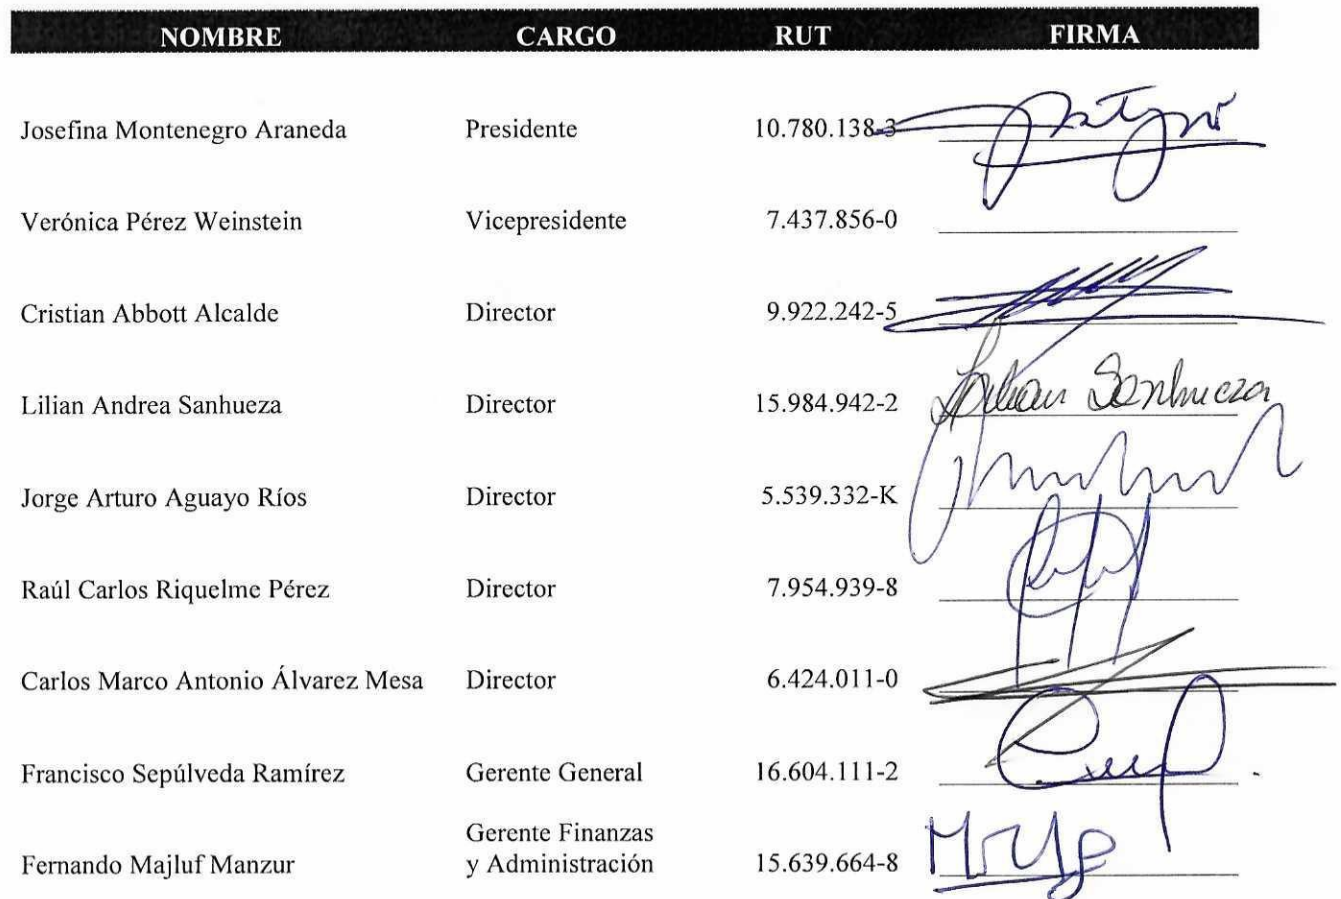 NOMBRE CARGO RUT FIRMA
Josefina Montenegro Araneda Presidente 10.780.138-3
Verónica Pérez Weinstein Vicepresidente 7.437.856-0
Cristian Abbott Alcalde Director 9.922.242-5
Lilian Andrea Sanhueza Director 15.984.942-2 Lilian Sanhueza
Jorge Arturo Aguayo Ríos Director 5.539.332-K
Raúl Carlos Riquelme Pérez Director 7.954.939-8
Carlos Marco Antonio Álvarez Mesa Director 6.424.011-0
Francisco Sepúlveda Ramírez Gerente General 16.604.111-2
Gerente Finanzas
Fernando Majluf Manzur y Administración 15.639.664-8